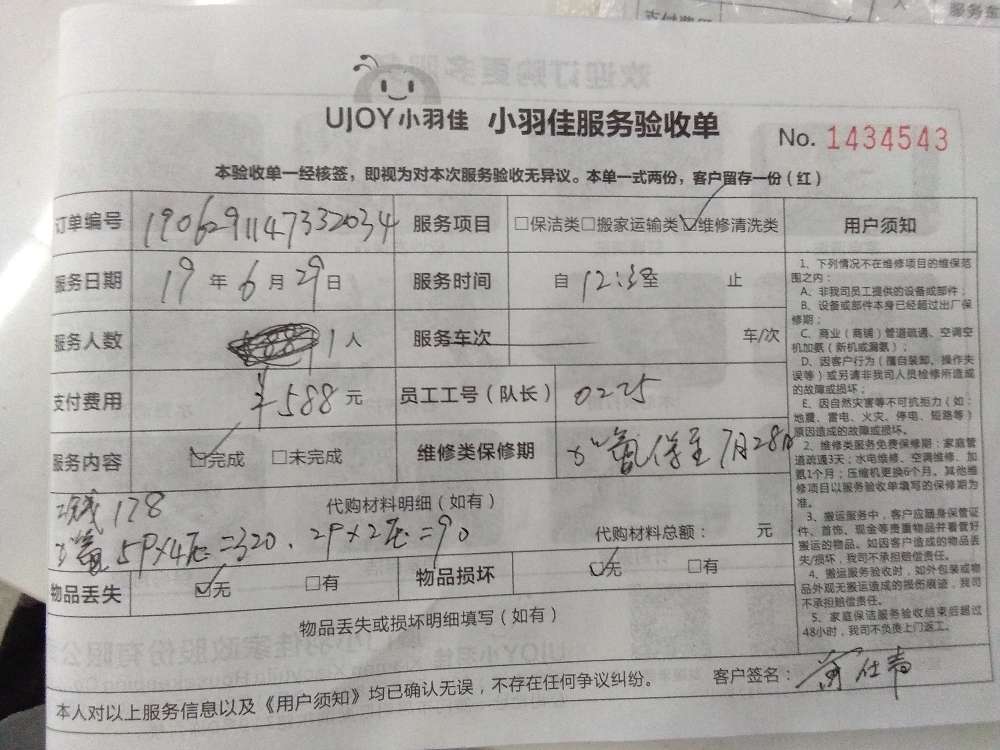 UJOY小羽佳 小羽佳服务验收单
No. 1434543
本验收单一经核签，即视为对本次服务验收无异议。本单一式两份，客户留存一份（红）
订单编号 1906291147332034 服务项目 □保洁类□搬家运输类☑维修清洗类
服务日期 19 年 6 月 29 日 服务时间 自 12:3 至 止
服务人数 1 人 服务车次 车/次
支付费用 ¥588 元 员工工号（队长） 0225
服务内容 ☑完成 □未完成 维修类保修期 加氟保至7月28日
代购材料明细（如有）
178
加氟5P×4压=320、2P×2压=90
代购材料总额： 元
物品丢失 ☑无 □有 物品损坏 ☑无 □有
物品丢失或损坏明细填写（如有）
本人对以上服务信息以及《用户须知》均已确认无误，不存在任何争议纠纷。
客户签名：
用户须知
1、下列情况不在维修项目的维保范
围之内：
A、非我司员工提供的设备或部件；
B、设备或部件本身已经超过出厂保
修期；
C、商业（商铺）管道疏通、空调空
机加氨（新机或漏氨）；
D、因客户行为（擅自装卸、操作失
误等）或另请非我司人员检修所造成
的故障或损坏；
E、因自然灾害等不可抗拒力（如：
地震、雷电、火灾、停电、短路等）
原因造成的故障或损坏。
2、维修类服务免费保修期：家庭管
道疏通3天；水电维修、空调维修、加
氨1个月；压缩机更换6个月。其他维
修项目以服务验收单填写的保修期为
准。
3、搬运服务中，客户应随身保管证
件、首饰、现金等贵重物品并看管好
搬运的物品。如因客户造成的物品丢
失/损坏，我司不承担赔偿责任。
4、搬运服务验收时，如外包装或物
品外观无搬运造成的损伤痕迹，我司
不承担赔偿责任。
5、家庭保洁服务验收结束后超过
48小时，我司不负责上门返工。